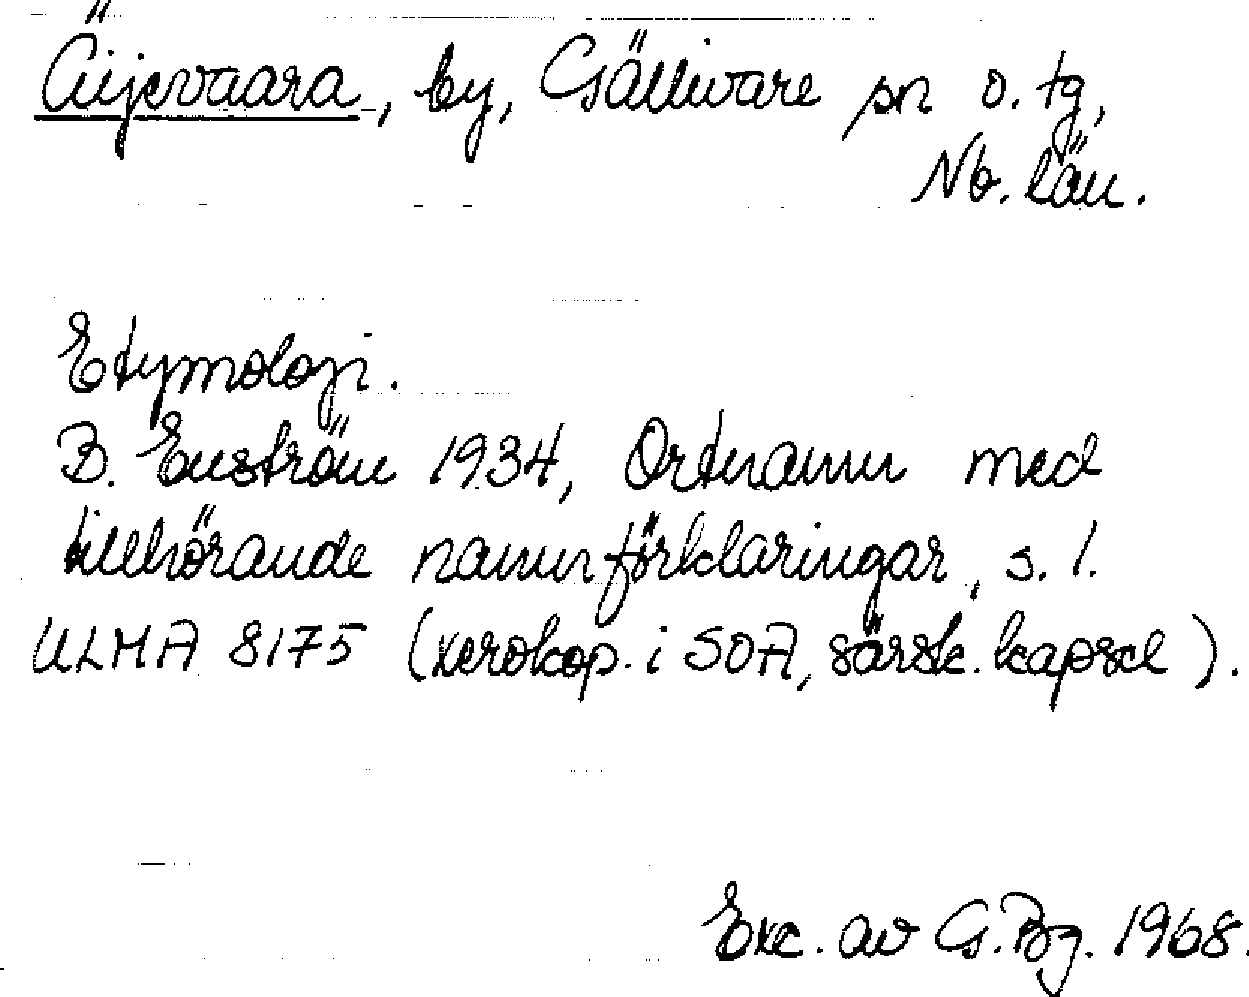 Äijevaara, by, Gällivare sn o. tg,
Nb. län.
Etymologi.
B. Enström 1934, Ortnamn med
tillhörande namnförklaringar, s. 1.
ULMA 8175 (xerokop. i SOA, särsk. kapsel).
Exc. av G. Bg. 1968.